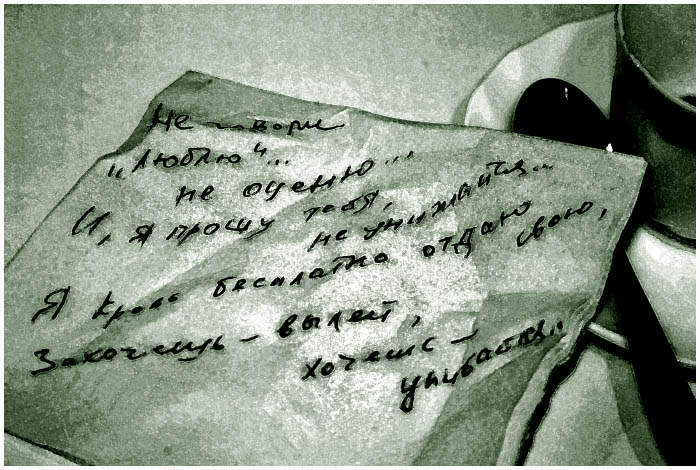 Не говори
„Люблю“...
не оценю...
И, я прошу тебя,
не унижайся..
Я кровь бесплатно отдаю
свою,
Захочешь – вылей,
хочешь –
упивайся..